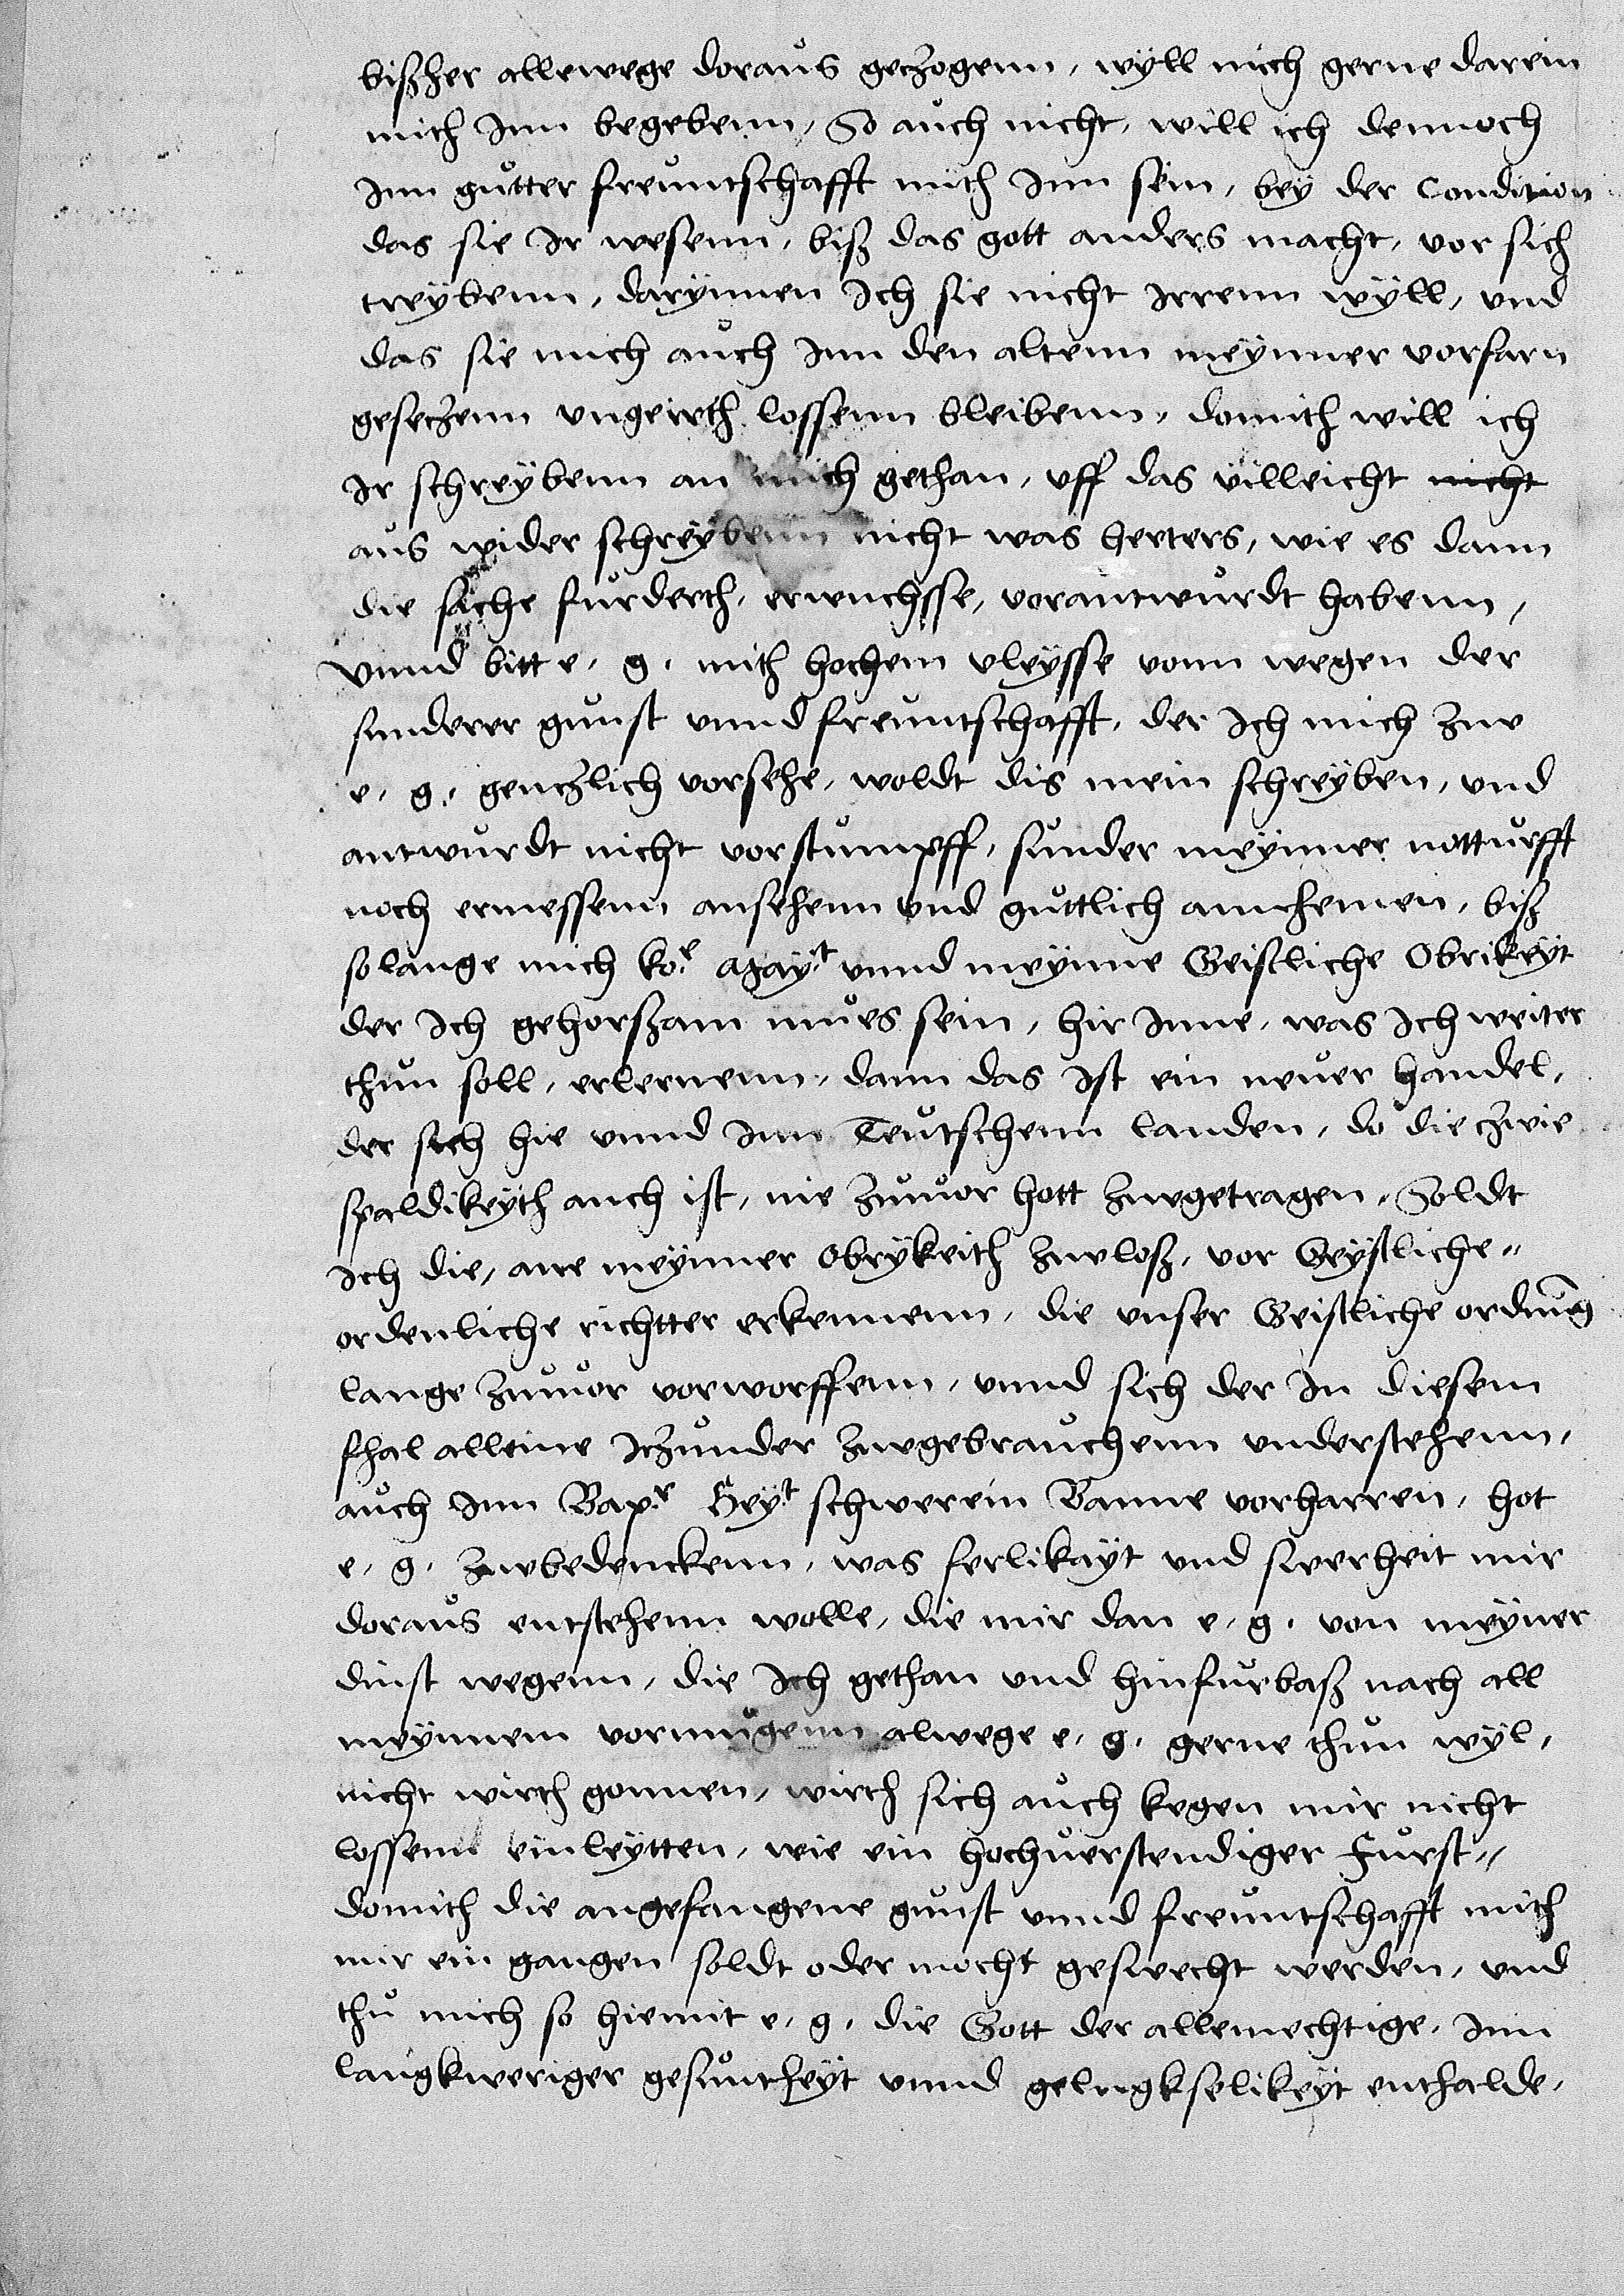 bißher allewege doraus geczogenn, wyll mich gerne darein
mith Inn begebenn, So auch nicht, will ich dennoch
Inn gutter freuntschafft mith Inn sein, bey der Condition
das sie Ir wesenn, biß das gott anders macht, vor sich
treybenn, darynnen Ich sie nicht Irrenn wyll, vnd
das sie mich auch Inn den altenn meynner vorfarn
geseczenn vngeirth lossenn bleibenn, domith will ich
Ir schreybenn an mich gethan, vff das villeicht nicht
aus wider schreybenn nicht was herters, wie es dann
die sache furderth, erwuchsse, vorantwurdt habenn,
Vnnd bitt e. g. mith hochem vleysse vonn wegen der
sunderer gunst vnnd freuntschafft, der Ich mich zue
e. g. genczlich vorsehe, woldt dis mein schreyben, vnd
antwurdt nicht vor stumpff, sunder meynner notturfft
noch ermessenn ansehenn vnd guttlich annehemen, biß
so lange mich ko.e May.t vnnd meynne Geistliche Obrikeyt
der Ich gehorßam mues sein, hir Inne, was Ich weiter
thun soll, erlernenn, dann das Ist ein neuer handel,
der sich hie vnnd Inn Teutschenn landen, do die czwie
spaldikeyth auch ist, nie zuuor hott zugetragen, Soldt
Ich die, ane meynner Obrykeith zuloß, vor Geystliche
ordenliche richtter erkennenn, die vnser Geistliche ordnung
lange zuuor vorworffenn, vnnd sich der In diesem
fhal alleine Iczunder zugebrauchenn vnderstehenn,
auch Inn Bap.e Hey.t schwerem Banne vorharren, hot
e. g. zubedenckenn, was ferlikayt vnd swerheit mir
doraus entstehenn wolle, die mir dan e. g. von meyner
dinst wegenn, die Ich gethan vnd hinfurbaß nach all
meynnem vormugenn alwege e. g. gerne thun wyl,
nicht wirth gonnen, wirth sich auch kegen mir nicht
lossenn einleytten, wie ein hochuerstendiger Furst
domith die angefangene gunst vnnd freuntschafft mith
mir ein gangen soldt oder mocht geswecht werden, vnd
thu mich so hiemit e. g. die Gott der allemechtige, Inn
langkweriger gesuntheyt vnnd gelugkselikeyt enthalde,